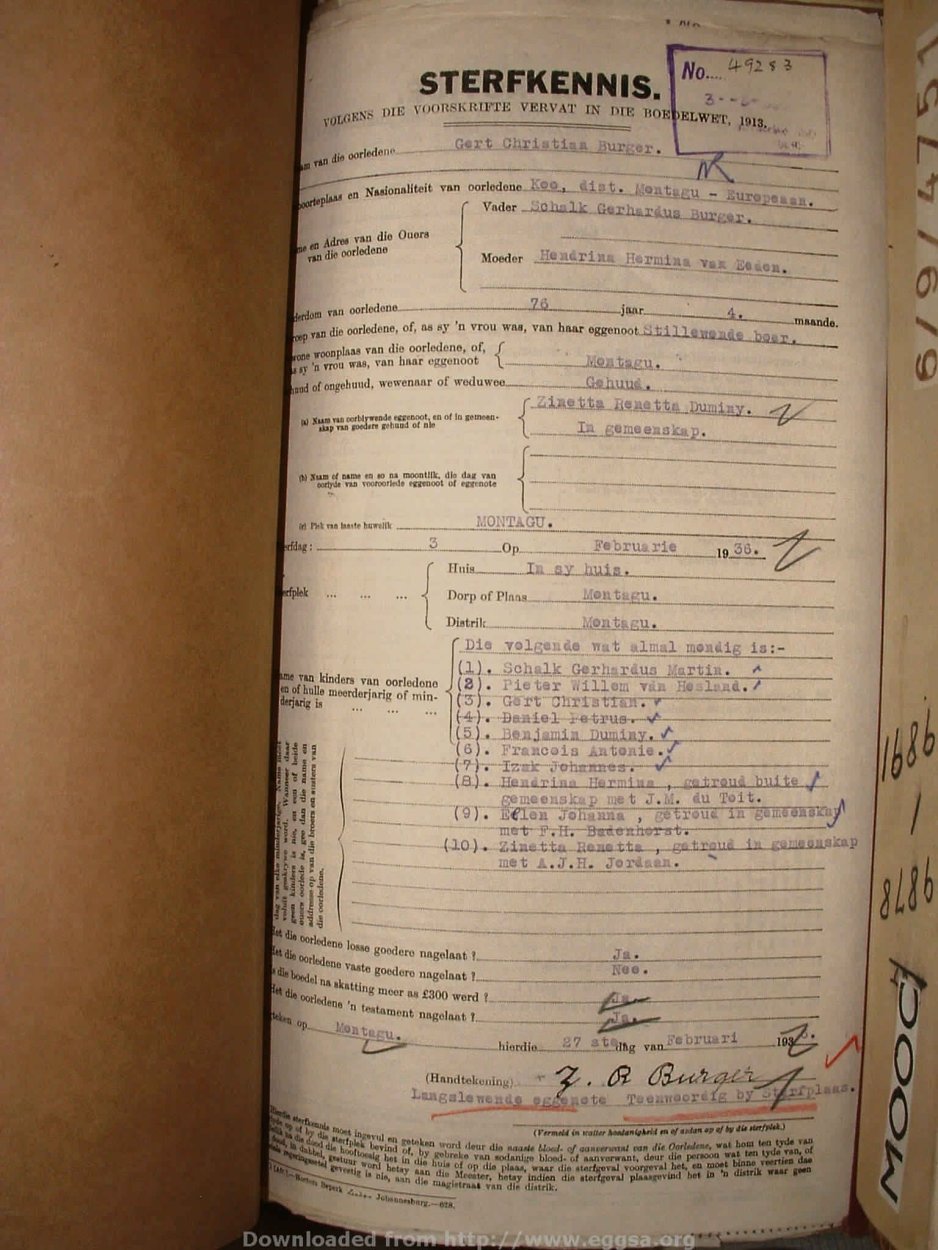 No. 49283
STERFKENNIS.
VOLGENS DIE VOORSKRIFTE VERVAT IN DIE BOEDELWET, 1913.
van die oorledene Gert Christian Burger.
en Nasionaliteit van oorledene Koo, dist. Montagu - Europeaan.
en Adres van die Ouers
van die oorledene
Vader Schalk Gerhardus Burger.
Moeder Hendrina Hermina van Eeden.
van oorledene 76 jaar 4. maande.
van die oorledene, of, as sy 'n vrou was, van haar eggenoot Stillewende boer.
woonplaas van die oorledene, of,
as sy 'n vrou was, van haar eggenoot Montagu.
of ongehuud, wewenaar of weduwee Gehuud.
(a) Naam van oorblywende eggenoot, en of in gemeen-
skap van goedere gehuud of nie
Zinetta Renetta Duminy.
In gemeenskap.
(b) Naam of name en so na moontlik, die dag van
oorlyde van vooroorlede eggenoot of eggenote
(c) Plek van laaste huwelik MONTAGU.
3 Op Februarie 1936.
Huis In sy huis.
Dorp of Plaas Montagu.
Distrik Montagu.
van kinders van oorledene
en of hulle meerderjarig of min-
derjarig is
Die volgende wat almal mondig is:-
(1). Schalk Gerhardus Martin.
(2). Pieter Willem van Hesland.
(3). Gert Christian.
(4). Daniel Petrus.
(5). Benjamin Duminy.
(6). Francois Antonie.
(7). Izak Johannes.
(8). Hendrina Hermina , getroud buite
gemeenskap met J.M. du Toit.
(9). Ellen Johanna , getroud in gemeenskap
met F.H. Badenhorst.
(10). Zinetta Renetta , getroud in gemeenskap
met A.J.H. Jordaan.
die oorledene losse goedere nagelaat ? Ja.
die oorledene vaste goedere nagelaat ? Nee.
die boedel na skatting meer as £300 werd ? Ja.
Het die oorledene 'n testament nagelaat ? Ja.
op Montagu. hierdie 27 ste dag van Februari 193
(Handtekening) Z. R Burger
Langslewende eggenote Teenwoordig by Sterfplaas.
(Vermeld in watter hoedanigheid en of aldan op of by die sterfplek.)
Hierdie sterfkennis moet ingevul en geteken word deur die naaste bloed- of aanverwant van die Oorledene, wat hom ten tyde van
die dood op of by die sterfplek bevind of, by gebreke van sodanige bloed- of aanverwant, deur die persoon wat ten tyde van, of
na die dood die hooftoesig het in die huis of op die plaas, waar die sterfgeval voorgeval het, en moet binne veertien dae
in dubbel, gestuur word hetsy aan die Meester, hetsy indien die sterfgeval plaasgevind het in 'n distrik waar geen
gevestig is nie, aan die magistraat van die distrik.
Johannesburg.—628.
MOOC 6/9/4751
9878 - 9891
Downloaded from http://www.eggsa.org